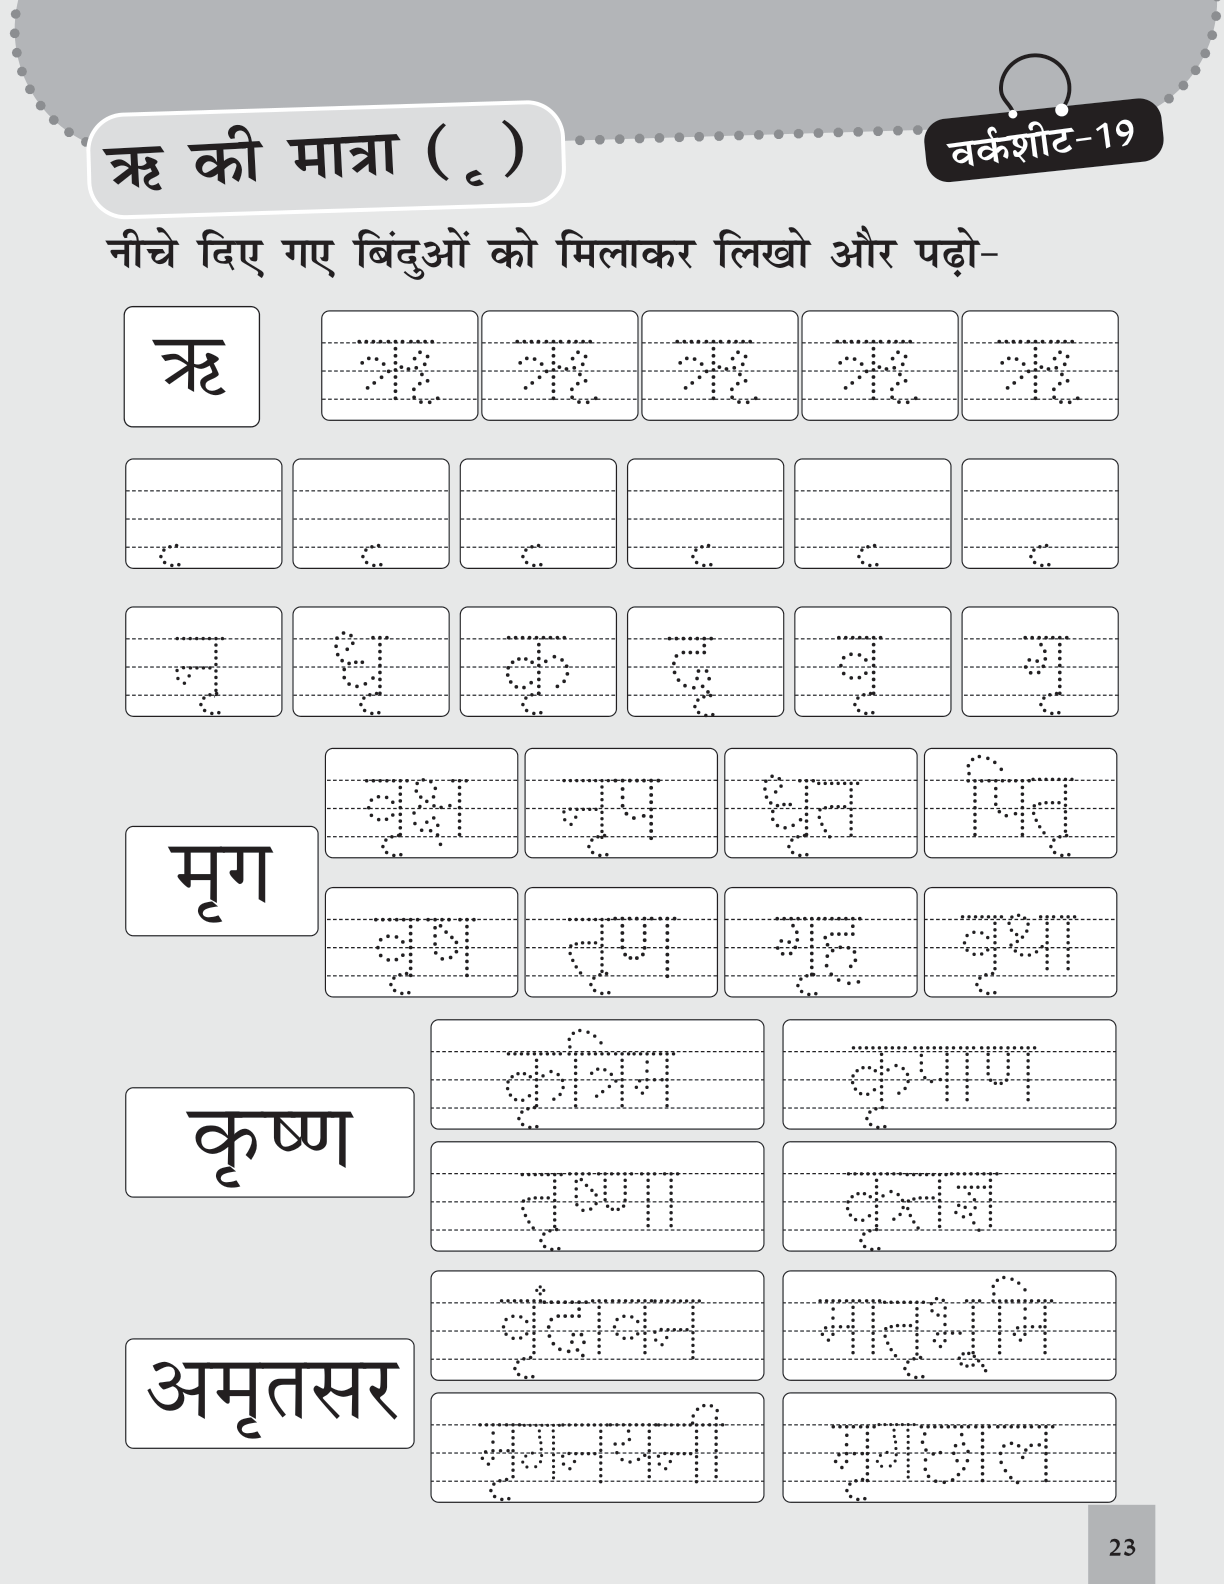 ऋ की मात्रा ( ृ )
वर्कशीट-19
नीचे दिए गए बिंदुओं को मिलाकर लिखो और पढ़ो-
ऋ ऋ ऋ ऋ ऋ ऋ
ृ ृ ृ ृ ृ ृ
नृ धृ कृ दृ वृ मृ
वृक्ष नृप धृत पितृ
मृग
वृष तृण वृथा
कृत्रिम कृपाण
कृष्ण
तृष्णा
वृंदावन मातृभूमि
अमृतसर
मृगनयनी मृगछाल
23